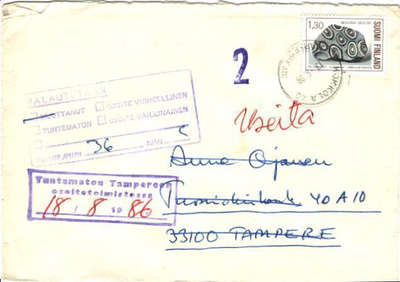 1,30
SUOMI FINLAND
2
PALAUTETAAN
MUUTTANUT
OSOITE VIRHEELLINEN
TUNTEMATON
OSOITE VAILLINAINEN
36
Useita
Anne Ojanen
Tuntematon Tampereen
osoitetoimistossa
18/8 1986
40 A 10
33100 TAMPERE